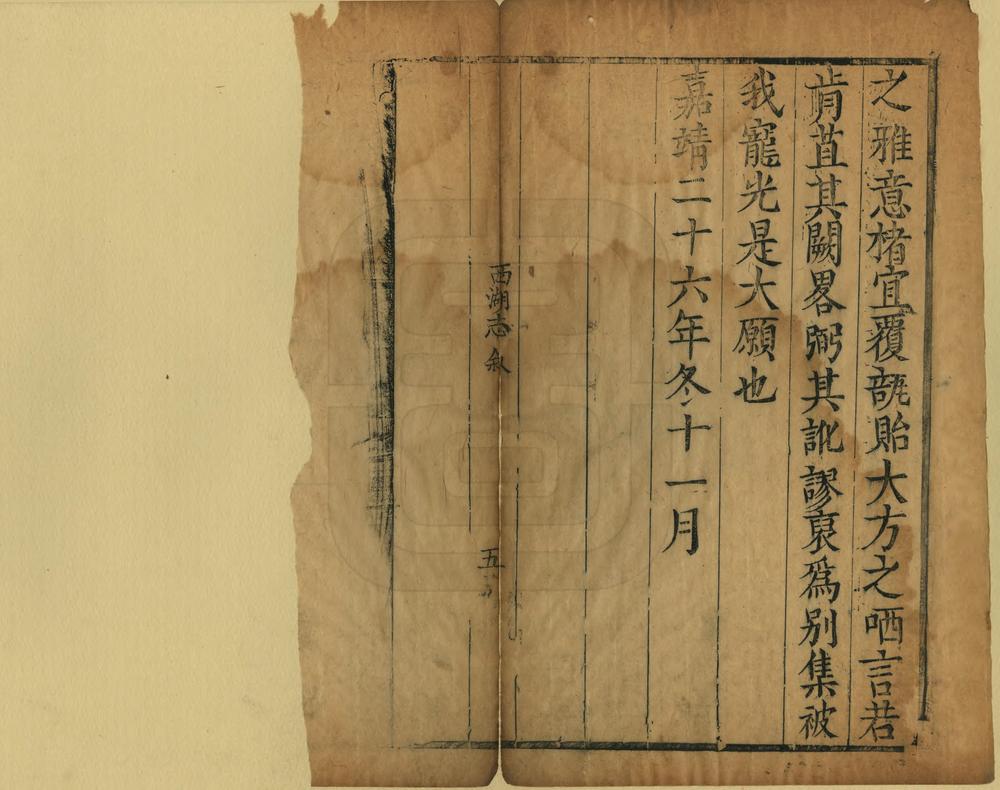 之雅意楮宜覆瓿貽大方之哂言若
肯苴其闕畧弼其訛謬裒為別集被
我寵光是大願也
嘉靖二十六年冬十一月
西湖志叙
五